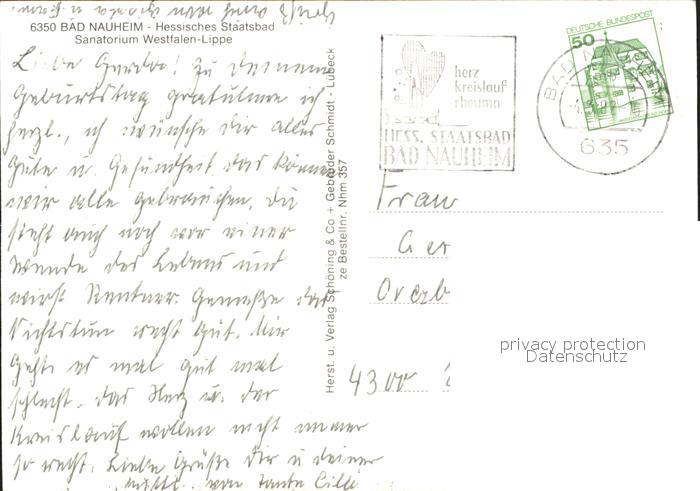 6350 BAD NAUHEIM - Hessisches Staatsbad
Sanatorium Westfalen-Lippe
Liebe Gerda! Zu deinem
Geburtstag gratuliere ich
herzl., ich wünsche dir alles
Gute u. Gesundheit das können
wir alle gebrauchen, Du
steht auch noch vor einer
Wende des Lebens und
wirst Rentner. Genieße das
Nichtstun recht gut. Mir
geht es mal gut mal
schlecht. das Herz u. der
Kreislauf wollen nicht immer
so recht. Liebe Grüße Dir u deiner
von Tante Cilli
Herst. u. Verlag Schöning & Co + Gebrüder Schmidt - Lübeck
ze Bestellnr. Nhm 357
herz
kreislauf
rheuma
HESS. STAATSBAD
BAD NAUHEIM
DEUTSCHE BUNDESPOST
50
BAD NAUHEIM
635
Frau
Ger
Overb
4300
privacy protection
Datenschutz